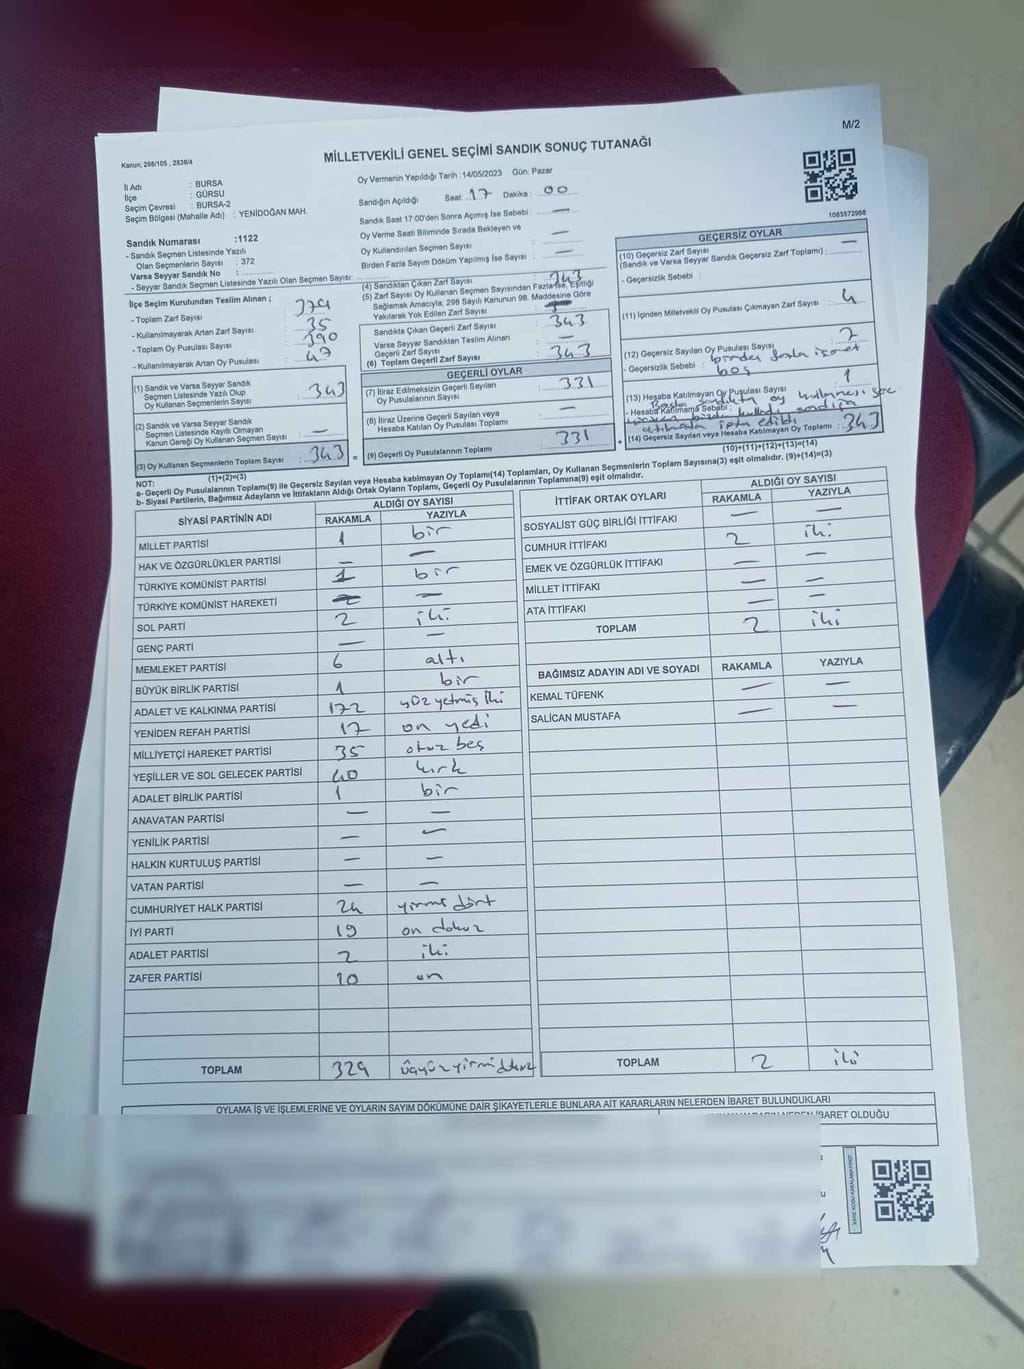 M/2
Kanun; 298/105 , 2839/4
MİLLETVEKİLİ GENEL SEÇİMİ SANDIK SONUÇ TUTANAĞI
İl Adı : BURSA
İlçe : GÜRSU
Seçim Çevresi : BURSA-2
Seçim Bölgesi (Mahalle Adı) : YENİDOĞAN MAH.
Sandık Numarası :1122
- Sandık Seçmen Listesinde Yazılı
Olan Seçmenlerin Sayısı : 372
Varsa Seyyar Sandık No :
- Seyyar Sandık Seçmen Listesinde Yazılı Olan Seçmen Sayısı:
Oy Vermenin Yapıldığı Tarih :14/05/2023 Gün: Pazar
Sandığın Açıldığı Saat: 17 Dakika : 00
Sandık Saat 17:00'den Sonra Açımış İse Sebebi : —
Oy Verme Saati Bitiminde Sırada Bekleyen ve
Oy Kullandırılan Seçmen Sayısı : —
Birden Fazla Sayım Döküm Yapılmış İse Sayısı : —
1083872966
İlçe Seçim Kurulundan Teslim Alınan ;
- Toplam Zarf Sayısı : 379
- Kullanılmayarak Artan Zarf Sayısı : 35
- Toplam Oy Pusulası Sayısı : 390
- Kullanılmayarak Artan Oy Pusulası : 47
(1) Sandık ve Varsa Seyyar Sandık
Seçmen Listesinde Yazılı Olup
Oy Kullanan Seçmenlerin Sayısı : 343
(2) Sandık ve Varsa Seyyar Sandık
Seçmen Listesinde Kayıtlı Olmayan
Kanun Gereği Oy Kullanan Seçmen Sayısı : —
(3) Oy Kullanan Seçmenlerin Toplam Sayısı : 343
(1)+(2)=(3)
(4) Sandıktan Çıkan Zarf Sayısı : 343
(5) Zarf Sayısı Oy Kullanan Seçmen Sayısından Fazla İse, Eşitliği
Sağlamak Amacıyla; 298 Sayılı Kanunun 98. Maddesine Göre
Yakılarak Yok Edilen Zarf Sayısı :
Sandıkta Çıkan Geçerli Zarf Sayısı : 343
Varsa Seyyar Sandıktan Teslim Alınan
Geçerli Zarf Sayısı : —
(6) Toplam Geçerli Zarf Sayısı : 343
GEÇERLİ OYLAR
(7) İtiraz Edilmeksizin Geçerli Sayılan
Oy Pusulalarının Sayısı : 331
(8) İtiraz Üzerine Geçerli Sayılan veya
Hesaba Katılan Oy Pusulası Toplamı : —
(9) Geçerli Oy Pusulalarının Toplamı : 331
GEÇERSİZ OYLAR
(10) Geçersiz Zarf Sayısı
(Sandık ve Varsa Seyyar Sandık Geçersiz Zarf Toplamı) : —
- Geçersizlik Sebebi :
(11) İçinden Milletvekili Oy Pusulası Çıkmayan Zarf Sayısı : 4
(12) Geçersiz Sayılan Oy Pusulası Sayısı : 7
- Geçersizlik Sebebi : birden fazla işaret
boş
(13) Hesaba Katılmayan Oy Pusulası Sayısı : 1
- Hesaba Katılmama Sebebi : sandıkta oy
iptal edildi
(14) Geçersiz Sayılan veya Hesaba Katılmayan Oy Toplamı : 343
(10)+(11)+(12)+(13)=(14)
NOT:
a- Geçerli Oy Pusulalarının Toplamı(9) ile Geçersiz Sayılan veya Hesaba katılmayan Oy Toplamı(14) Toplamları, Oy Kullanan Seçmenlerin Toplam Sayısına(3) eşit olmalıdır. (9)+(14)=(3)
b- Siyasi Partilerin, Bağımsız Adayların ve İttifakların Aldığı Ortak Oyların Toplamı, Geçerli Oy Pusulalarının Toplamına(9) eşit olmalıdır.
SİYASİ PARTİNİN ADI ALDIĞI OY SAYISI
RAKAMLA YAZIYLA
MİLLET PARTİSİ 1 bir
HAK VE ÖZGÜRLÜKLER PARTİSİ — —
TÜRKİYE KOMÜNİST PARTİSİ 1 bir
TÜRKİYE KOMÜNİST HAREKETİ —
SOL PARTİ 2 iki
GENÇ PARTİ — —
MEMLEKET PARTİSİ 6 altı
BÜYÜK BİRLİK PARTİSİ 1 bir
ADALET VE KALKINMA PARTİSİ 172 yüz yetmiş iki
YENİDEN REFAH PARTİSİ 17 on yedi
MİLLİYETÇİ HAREKET PARTİSİ 35 otuz beş
YEŞİLLER VE SOL GELECEK PARTİSİ 40 kırk
ADALET BİRLİK PARTİSİ 1 bir
ANAVATAN PARTİSİ — —
YENİLİK PARTİSİ — —
HALKIN KURTULUŞ PARTİSİ — —
VATAN PARTİSİ — —
CUMHURİYET HALK PARTİSİ 24 yirmi dört
İYİ PARTİ 19 on dokuz
ADALET PARTİSİ 2 iki
ZAFER PARTİSİ 10 on
TOPLAM 329 üçyüzyirmidokuz
İTTİFAK ORTAK OYLARI ALDIĞI OY SAYISI
RAKAMLA YAZIYLA
SOSYALİST GÜÇ BİRLİĞİ İTTİFAKI — —
CUMHUR İTTİFAKI 2 iki
EMEK VE ÖZGÜRLÜK İTTİFAKI — —
MİLLET İTTİFAKI — —
ATA İTTİFAKI — —
TOPLAM 2 iki
BAĞIMSIZ ADAYIN ADI VE SOYADI RAKAMLA YAZIYLA
KEMAL TÜFENK — —
SALİCAN MUSTAFA — —
TOPLAM 2 iki
OYLAMA İŞ VE İŞLEMLERİNE VE OYLARIN SAYIM DÖKÜMÜNE DAİR ŞİKAYETLERLE BUNLARA AİT KARARLARIN NELERDEN İBARET BULUNDUKLARI
İBARET OLDUĞU